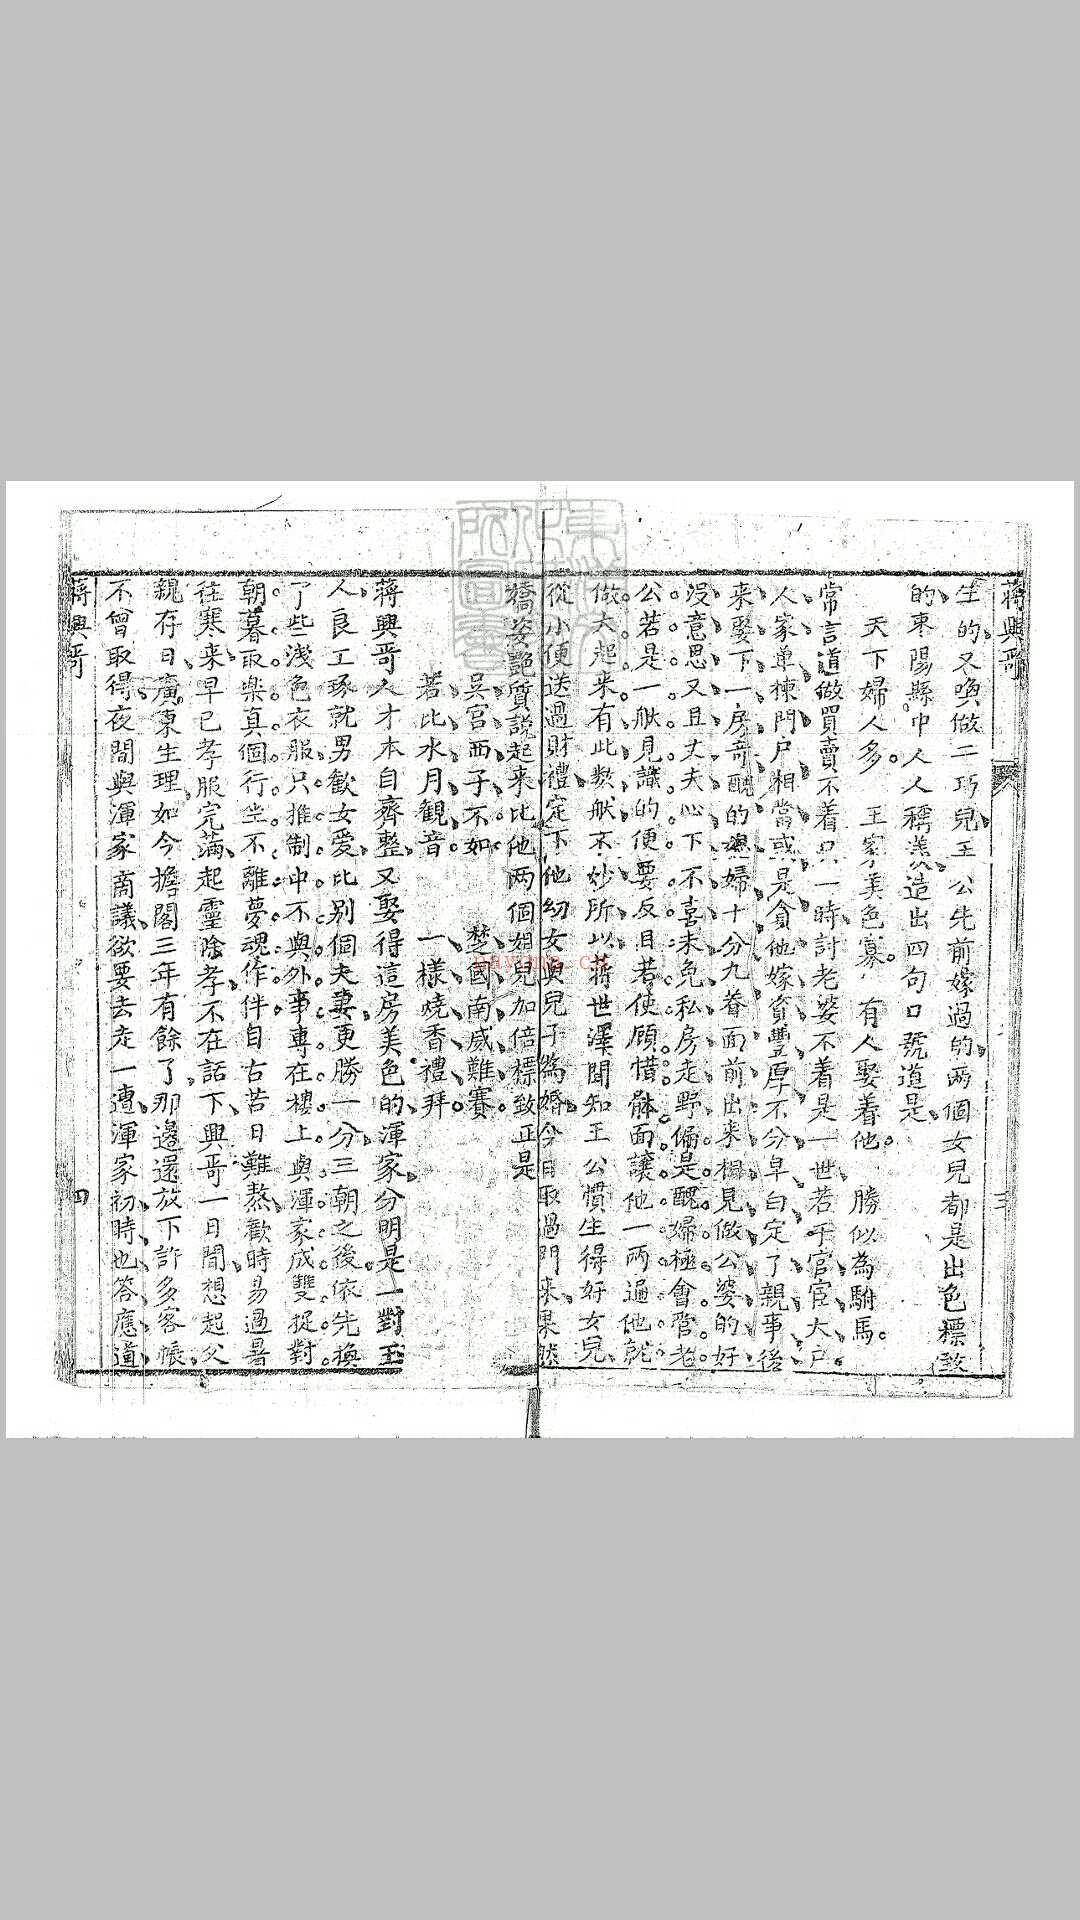 蔣興哥
三
生的又喚做二巧兒王公先前嫁過的两個女兒都是出色標致
的棗陽縣中人人稱羨造出四句口號道是
天下婦人多 王家美色寡 有人娶着他 勝似為駙馬
常言道做買賣不着只一時討老婆不着是一世若干官宦大户
人家单楝門户相當或是貪他嫁資豐厚不分皁白定了親事後
来娶下一房竒醜的媳婦十分九着面前出来相見做公婆的好
没意思又且丈夫心下不喜未免私房走野偏是醜婦極會管老
公若是一般見識的便要反目若使顧惜躰面讓他一两遍他就
做大起来有此数般不妙所以蒋世澤聞知王公慣生得好女兒
從小便送過財禮定下他幼女與兒子為婚今日取過門来果然
嬌姿艶質説起来比他两個姐兒加倍標致正是
吳宮西子不如 楚國南威難賽
若比水月觀音 一樣燒香禮拜
蒋興哥人才本自齊整又娶得這房美色的渾家分明是一對玉
人良工琢就男歡女愛比别個夫妻更勝一分三朝之後依先換
了些浅色衣服只推制中不與外事專在樓上與渾家成雙捉對
朝暮取樂真個行坐不離夢魂作伴自古苦日難熬歡時易過暑
往寒来早已孝服完滿起靈除孝不在話下興哥一日間想起父
親存日廣東生理如今擔閣三年有餘了那邊還放下許多客帳
不曾取得夜間與渾家商議欲要去走一遭渾家初時也答應道
蒋興哥
四
nayona.cn